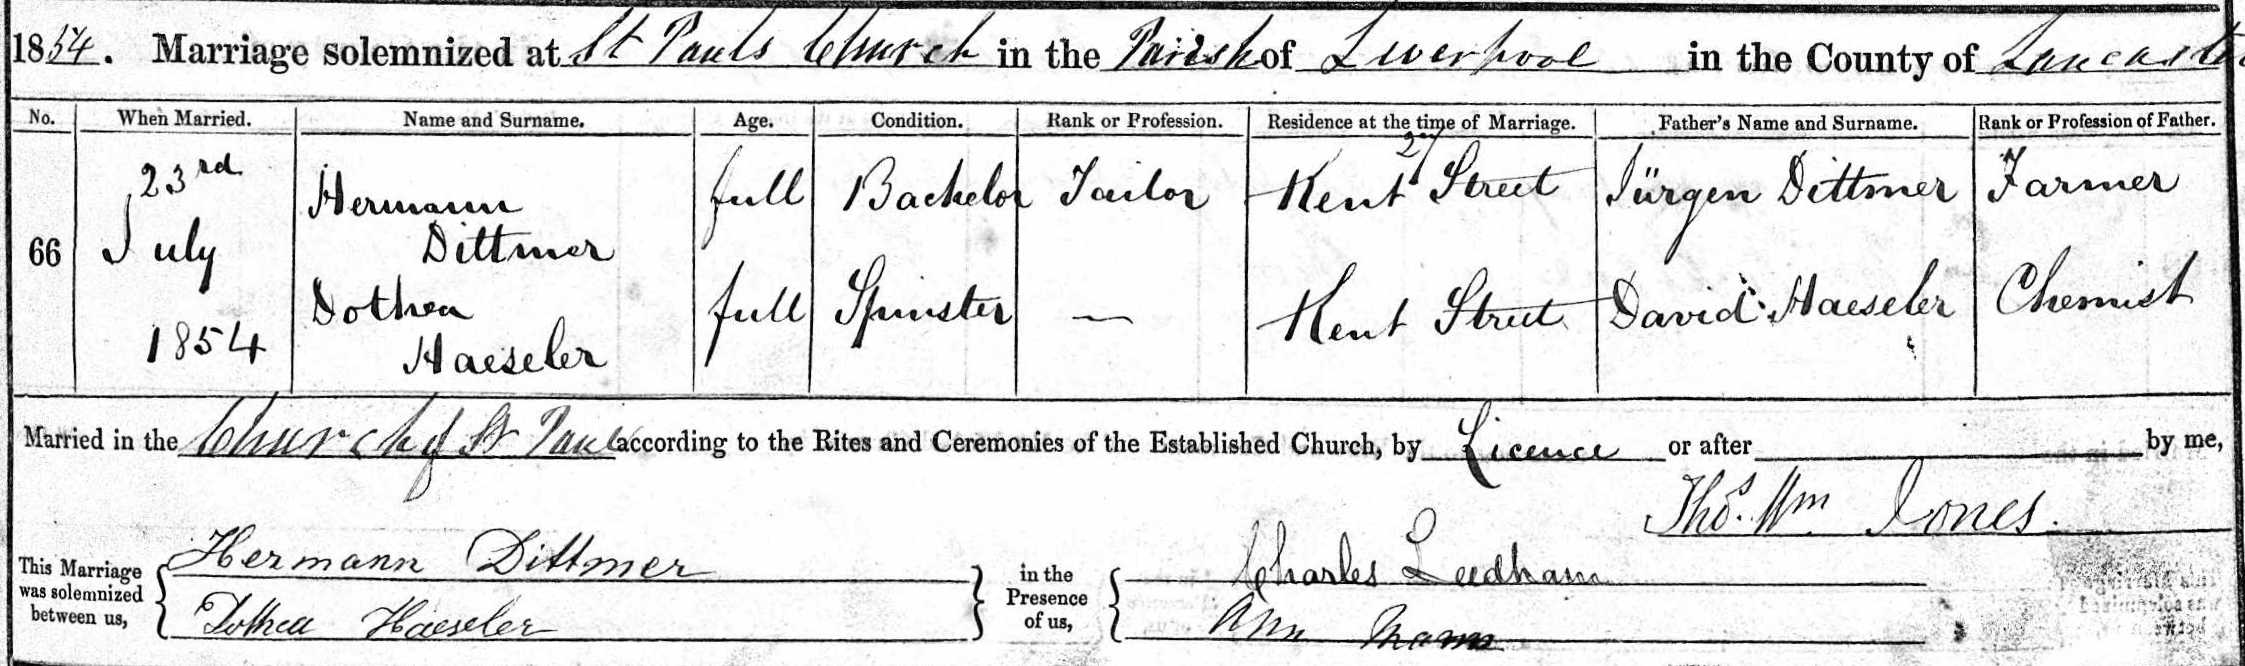 1854. Marriage solemnized at St Pauls Church in the Parish of Liverpool in the County of Lancaster
No. When Married. Name and Surname. Age. Condition. Rank or Profession. Residence at the time of Marriage. Father's Name and Surname. Rank or Profession of Father.
66 23rd July 1854 Hermann Dittmer full Bachelor Tailor 27 Kent Street Jürgen Dittmer Farmer
Dothea Haeseler full Spinster — Kent Street David Haeseler Chemist
Married in the Church of St Paul according to the Rites and Ceremonies of the Established Church, by Licence or after by me,
Thos. Wm Jones.
This Marriage was solemnized between us, Hermann Dittmer in the Presence of us, Charles Leedham
Dothea Haeseler Ann